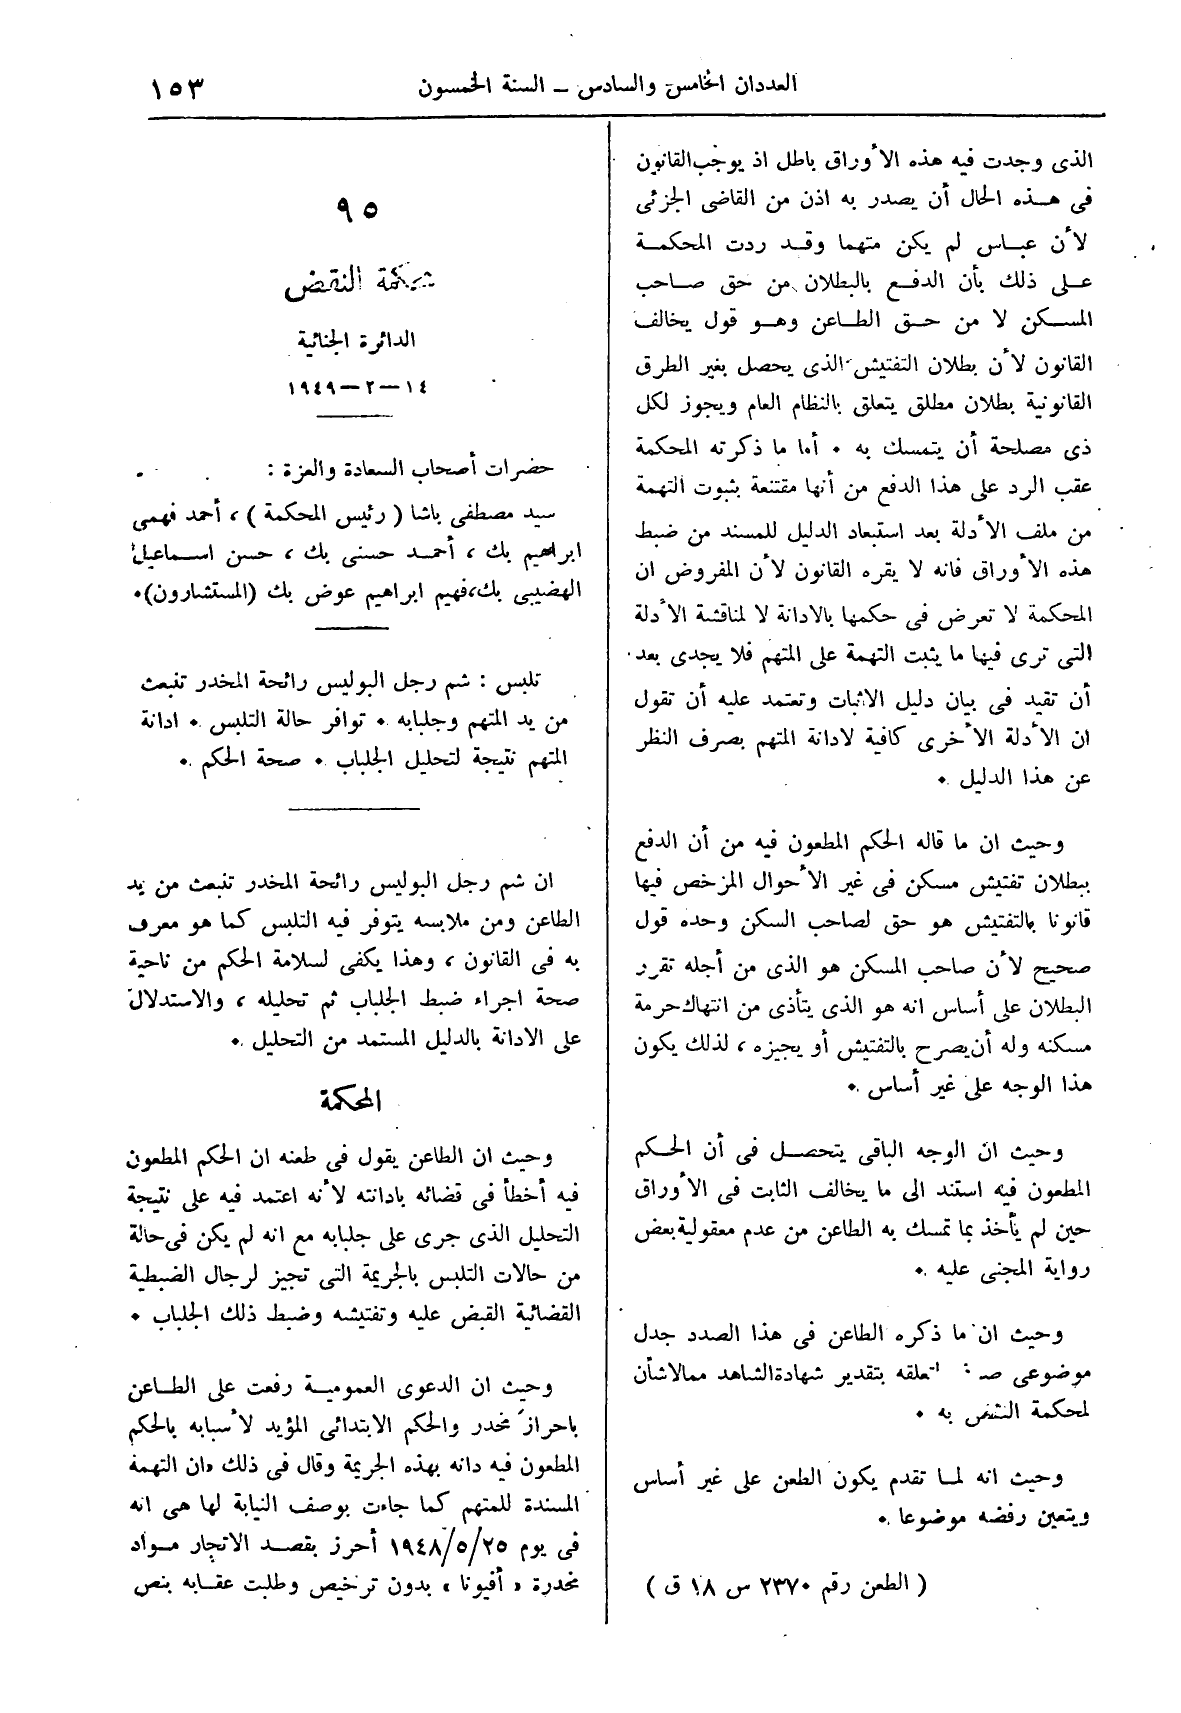 العددان الخامس والسادس – السنة الخمسون
١٥٣
الذى وجدت فيه هذه الأوراق باطل اذ يوجب القانون
فى هـذه الحال أن يصدر به اذن من القاضى الجزئى
لأن عبـاس لم يكن متهما وقـد ردت المحكمـة
عـلى ذلك بأن الدفـع بالبطلان من حق صـاحب
المسكن لا من حـق الطـاعن وهـو قول يخالف
القانون لأن بطلان التفتيش الذى يحصل بغير الطرق
القانونية بطلان مطلق يتعلق بالنظام العام ويجوز لكل
ذى مصلحة أن يتمسك به ٠ أما ما ذكرته المحكمة
عقب الرد على هذا الدفع من أنها مقتنعة بثبوت التهمة
من ملف الأدلة بعد استبعاد الدليل المستمد من ضبط
هذه الأوراق فانه لا يقره القانون لأن المفروض ان
المحكمة لا تعرض فى حكمها بالادانة لا لمناقشة الأدلة
التى ترى فيها ما يثبت التهمة على المتهم فلا يجدى بعد
أن تقيد فى بيان دليل الاثبات وتعتمد عليه أن تقول
ان الأدلة الأخرى كافية لادانة المتهم بصرف النظر
عن هذا الدليل ٠
وحيث ان ما قاله الحكم المطعون فيه من أن الدفع
ببطلان تفتيش مسكن فى غير الأحوال المرخص فيها
قانونا بالتفتيش هو حق لصاحب السكن وحده قول
صحيح لأن صاحب المسكن هو الذى من أجله تقرر
البطلان على أساس انه هو الذى يتأذى من انتهاك حرمة
مسكنه وله أن يصرح بالتفتيش أو يجيزه ، لذلك يكون
هذا الوجه على غير أساس ٠
وحيث ان الوجه الباقى يتحصـل فى أن الحـكم
المطعون فيه استند الى ما يخالف الثابت فى الأوراق
حين لم يأخذ بما تمسك به الطاعن من عدم معقولية بعض
رواية المجنى عليه ٠
وحيث ان ما ذكره الطاعن فى هذا الصدد جدل
موضوعى لتعلقه بتقدير شهادة الشاهد مما لا شأن
لمحكمة النقض به ٠
وحيث انه لمـا تقدم يكون الطعن على غير أساس
ويتعين رفضه موضوعا ٠
( الطعن رقم ٢٣٧٠ س ١٨ ق )
٩٥
محكمة النقض
الدائرة الجنائية
١٤ – ٢ – ١٩٤٩
حضرات أصحاب السعادة والعزة :
سيد مصطفى باشا ( رئيس المحكمة ) ، أحمد فهمى
ابراهيم بك ، أحمـد حسنى بك ، حسن اسمـاعيل
الهضيبى بك، فهيم ابراهيم عوض بك (المستشارون)٠
تلبس : شم رجل البوليس رائحة المخدر تنبعث
من يد المتهم وجلبابه ٠ توافر حالة التلبس ٠ ادانة
المتهم نتيجة لتحليل الجلباب ٠ صحة الحكم ٠
ان شم رجل البوليس رائحة المخدر تنبعث من يد
الطاعن ومن ملابسه يتوفر فيه التلبس كما هو معرف
به فى القانون ، وهذا يكفى لسلامة الحكم من ناحية
صحة اجراء ضبط الجلباب ثم تحليله ، والاستدلال
على الادانة بالدليل المستمد من التحليل ٠
المحكمة
وحيث ان الطاعن يقول فى طعنه ان الحكم المطعون
فيه أخطأ فى قضائه بادانته لأنه اعتمد فيه على نتيجة
التحليل الذى جرى على جلبابه مع انه لم يكن فى حالة
من حالات التلبس بالجريمة التى تجيز لرجال الضبطية
القضائية القبض عليه وتفتيشه وضبط ذلك الجلباب ٠
وحيث ان الدعوى العموميـة رفعت على الطـاعن
باحراز مخدر والحكم الابتدائى المؤيد لأسبابه بالحكم
المطعون فيه دانه بهذه الجريمة وقال فى ذلك «ان التهمة
المسندة للمتهم كما جاءت بوصف النيابة لها هى انه
فى يوم ١٩٤٨/٥/٢٥ أحرز بقصـد الاتجار مـواد
مخدرة « أفيونا » بدون ترخيص وطلبت عقـابه بنص